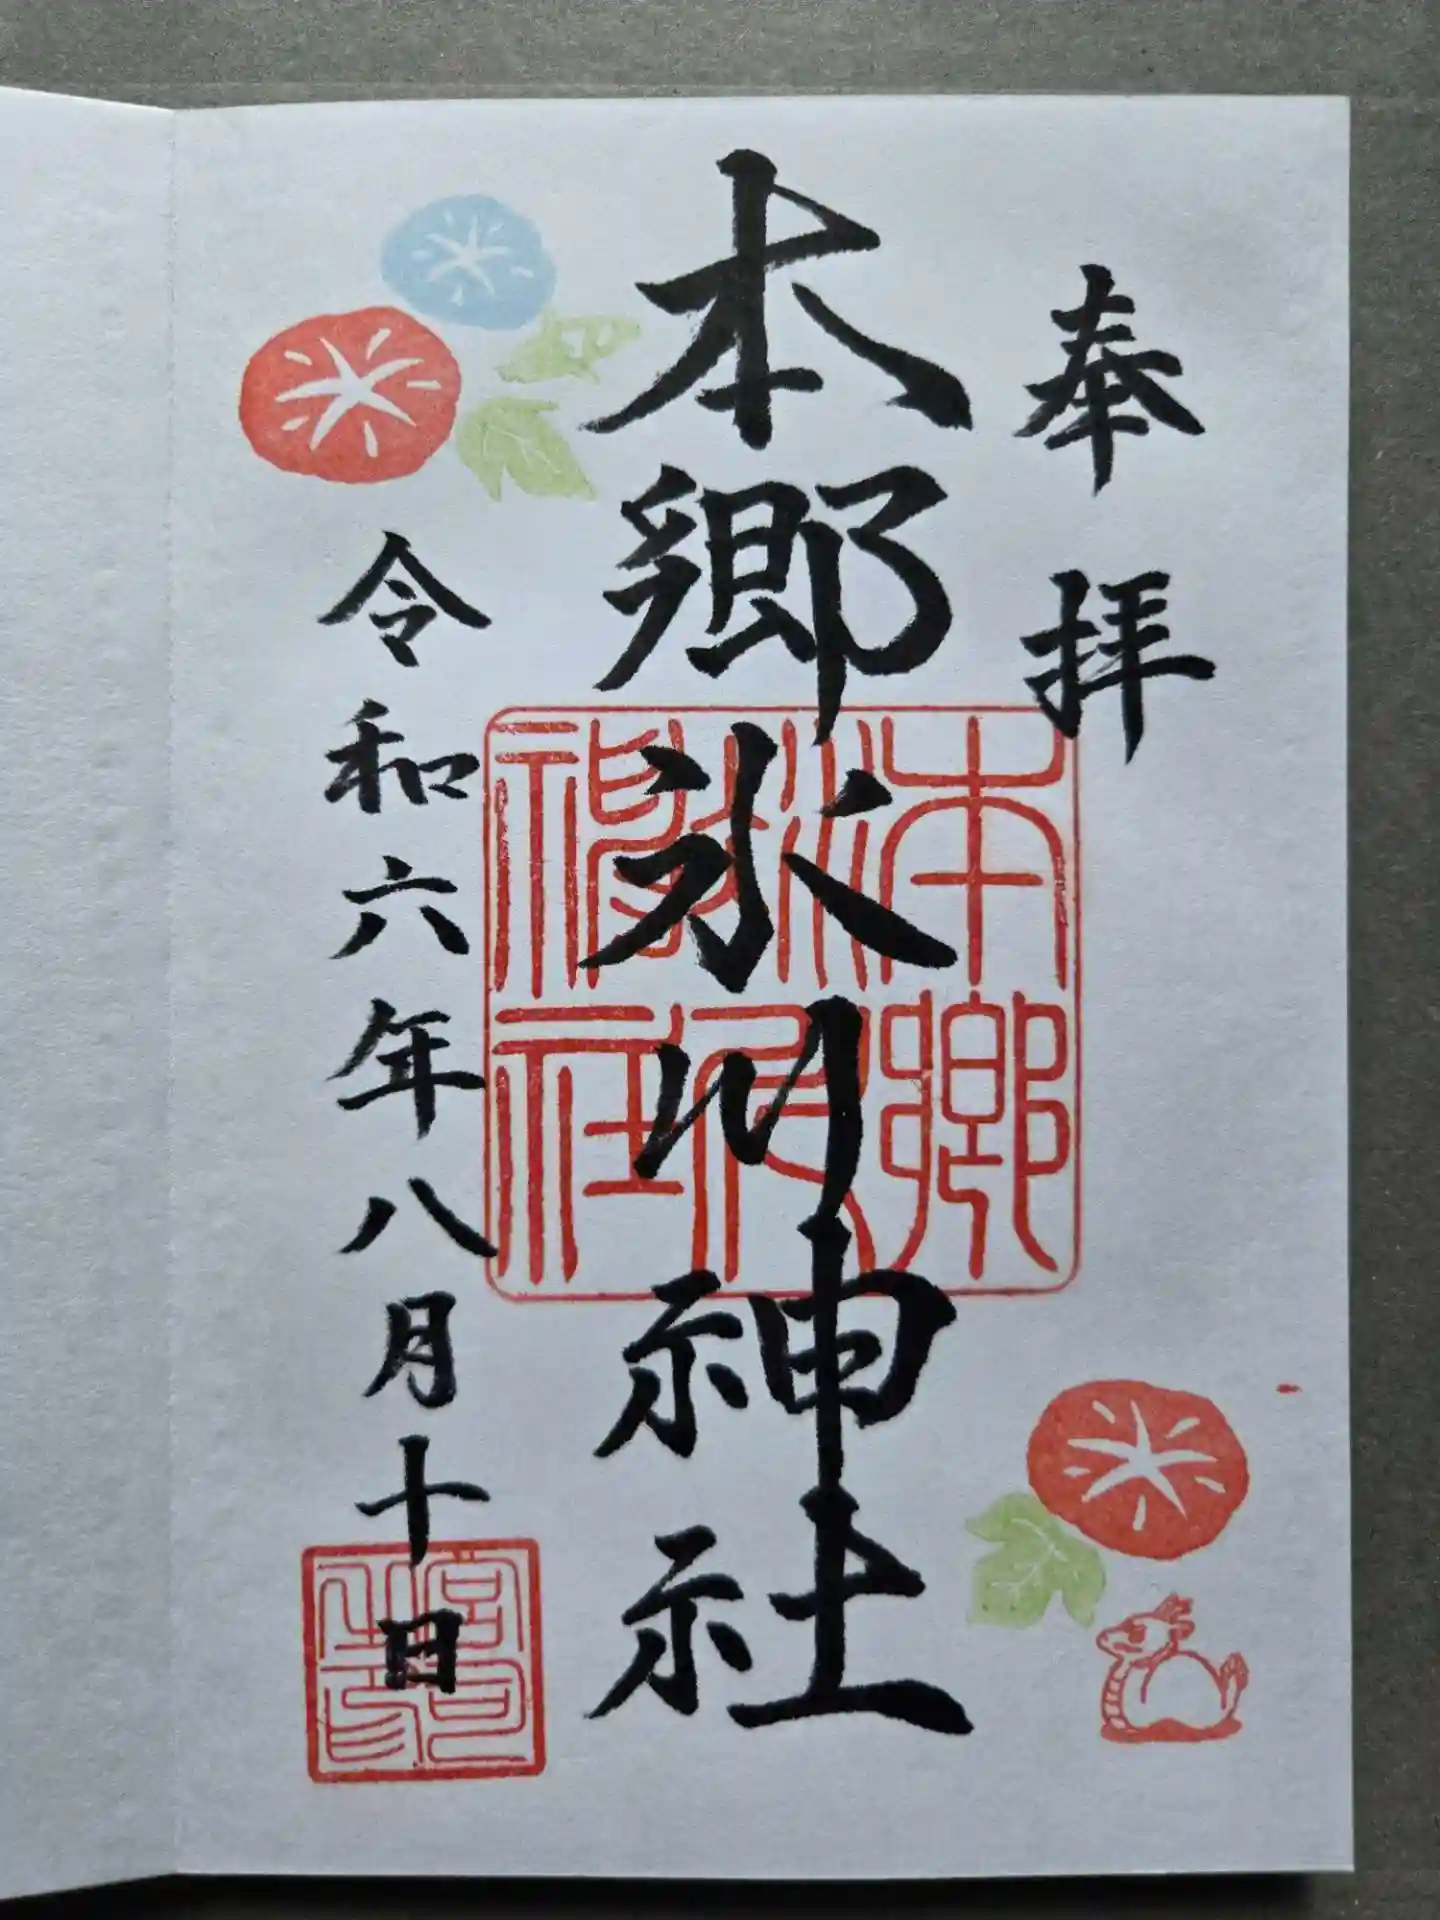 奉拝
本郷氷川神社
令和六年八月十日
本郷氷川神社
宮司之印